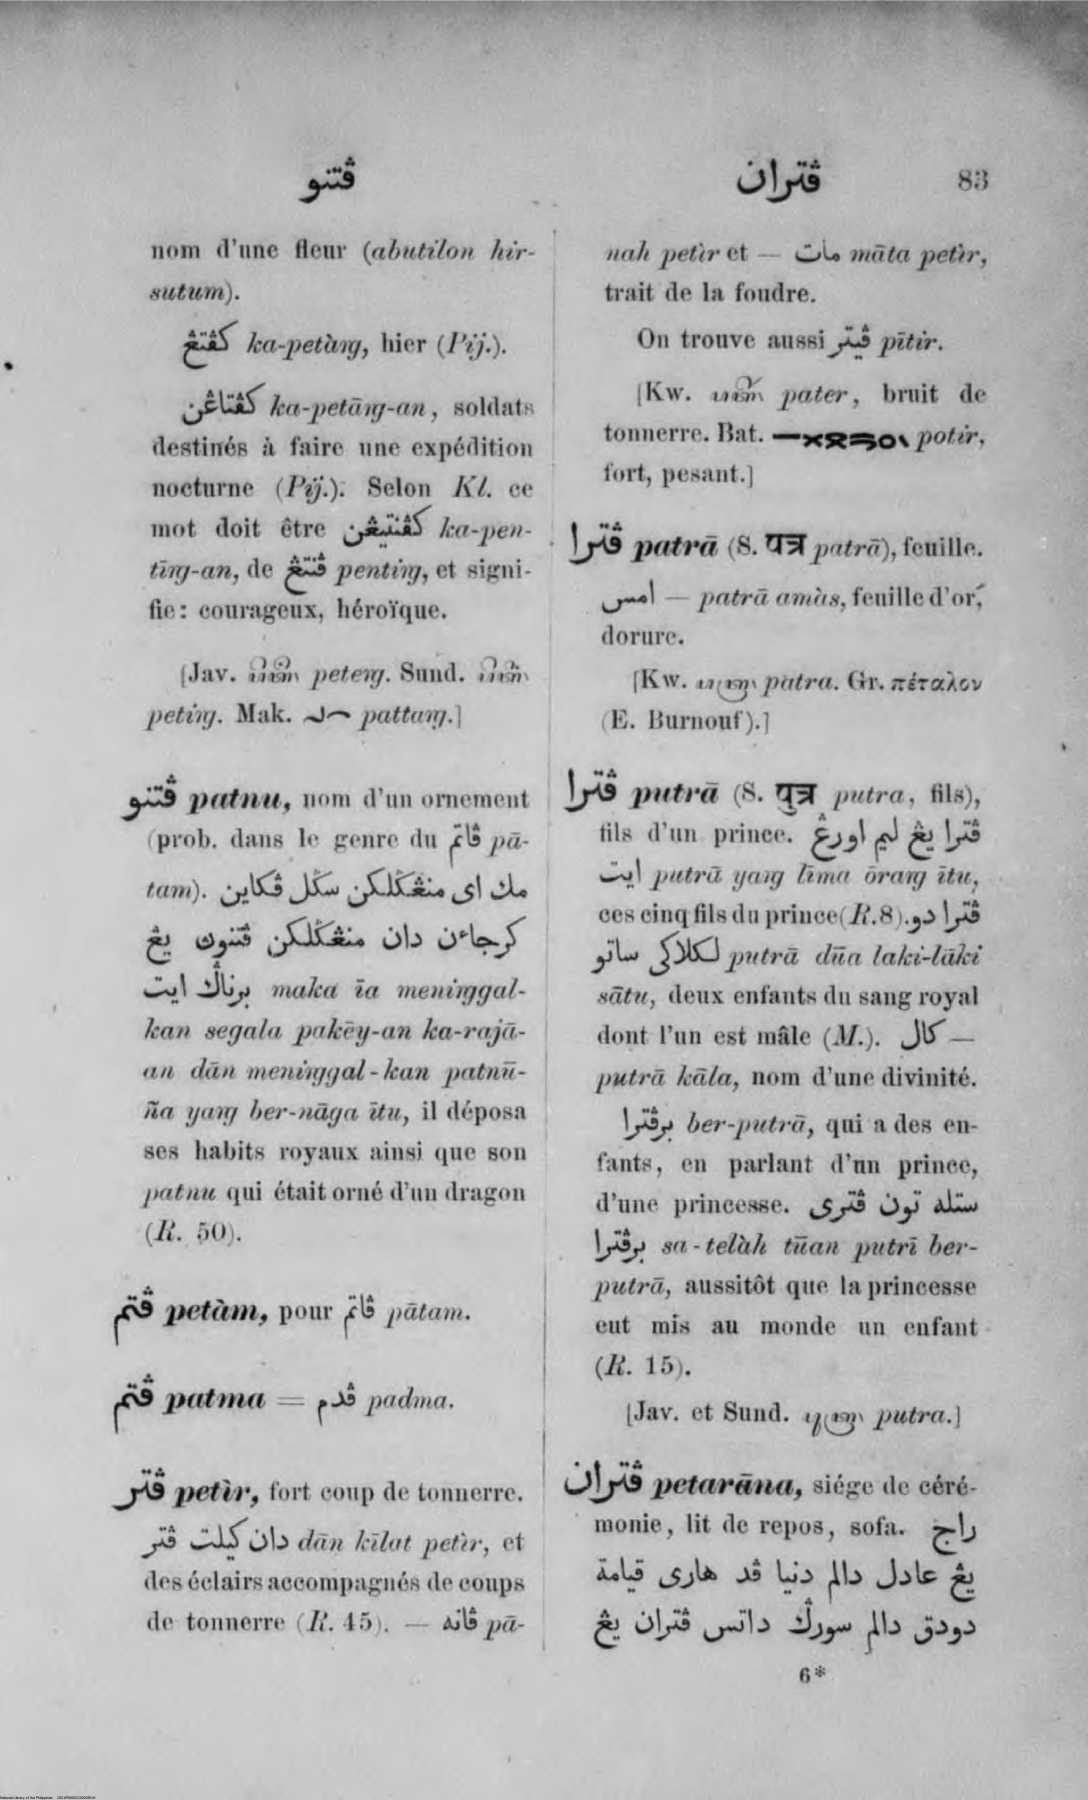 ڤتنو
ڤتران 83
nom d'une fleur (abutilon hir-
sutum).
كڤتڠ ka-petàrg, hier (Pij.).
كڤتاڠن ka-petārg-an, soldats
destinés à faire une expédition
nocturne (Pij.). Selon Kl. ce
mot doit être كڤنتيڠن ka-pen-
tīrg-an, de ڤنتڠ pentirg, et signi-
fie: courageux, héroïque.
[Jav. peterg. Sund.
petirg. Mak. pattarg.]
ڤتنو patnu, nom d'un ornement
(prob. dans le genre du ڤاتم pā-
tam). مك اي منڠݢلكن سݢل ڤكاين
كرجاءن دان منڠݢلكن ڤتنوڽ يڠ
برناݢ ايت maka īa menirggal-
kan segala pakēy-an ka-rajā-
an dān menirggal-kan patnū-
ña yarg ber-nāga ītu, il déposa
ses habits royaux ainsi que son
patnu qui était orné d'un dragon
(R. 50).
ڤتم petàm, pour ڤاتم pātam.
ڤتم patma = ڤدم padma.
ڤتر petìr, fort coup de tonnerre.
دان كيلت ڤتر dān kīlat petìr, et
des éclairs accompagnés de coups
de tonnerre (R. 45). — ڤانه pā-
nah petìr et — مات māta petìr,
trait de la foudre.
On trouve aussi ڤيتر pītir.
[Kw. pater, bruit de
tonnerre. Bat. potir,
fort, pesant.]
ڤترا patrā (S. पत्र patrā), feuille.
امس — patrā amàs, feuille d'or,
dorure.
[Kw. patra. Gr. πέταλον
(E. Burnouf).]
ڤترا putrā (S. पुत्र putra, fils),
fils d'un prince. ڤترا يڠ ليم اورڠ
ايت putrā yarg līma ōrarg ītu,
ces cinq fils du prince (R. 8). ڤترا دو
لكلاكي ساتو putrā dūa laki-lāki
sātu, deux enfants du sang royal
dont l'un est mâle (M.). كال —
putrā kāla, nom d'une divinité.
برڤترا ber-putrā, qui a des en-
fants, en parlant d'un prince,
d'une princesse. ستله تون ڤتري
برڤترا sa-telàh tūan putrī ber-
putrā, aussitôt que la princesse
eut mis au monde un enfant
(R. 15).
[Jav. et Sund. putra.]
ڤتران petarāna, siége de céré-
monie, lit de repos, sofa. راج
يڠ عادل دالم دنيا ڤد هاري قيامة
دودق دالم سورݢ داتس ڤتران يڠ
6*